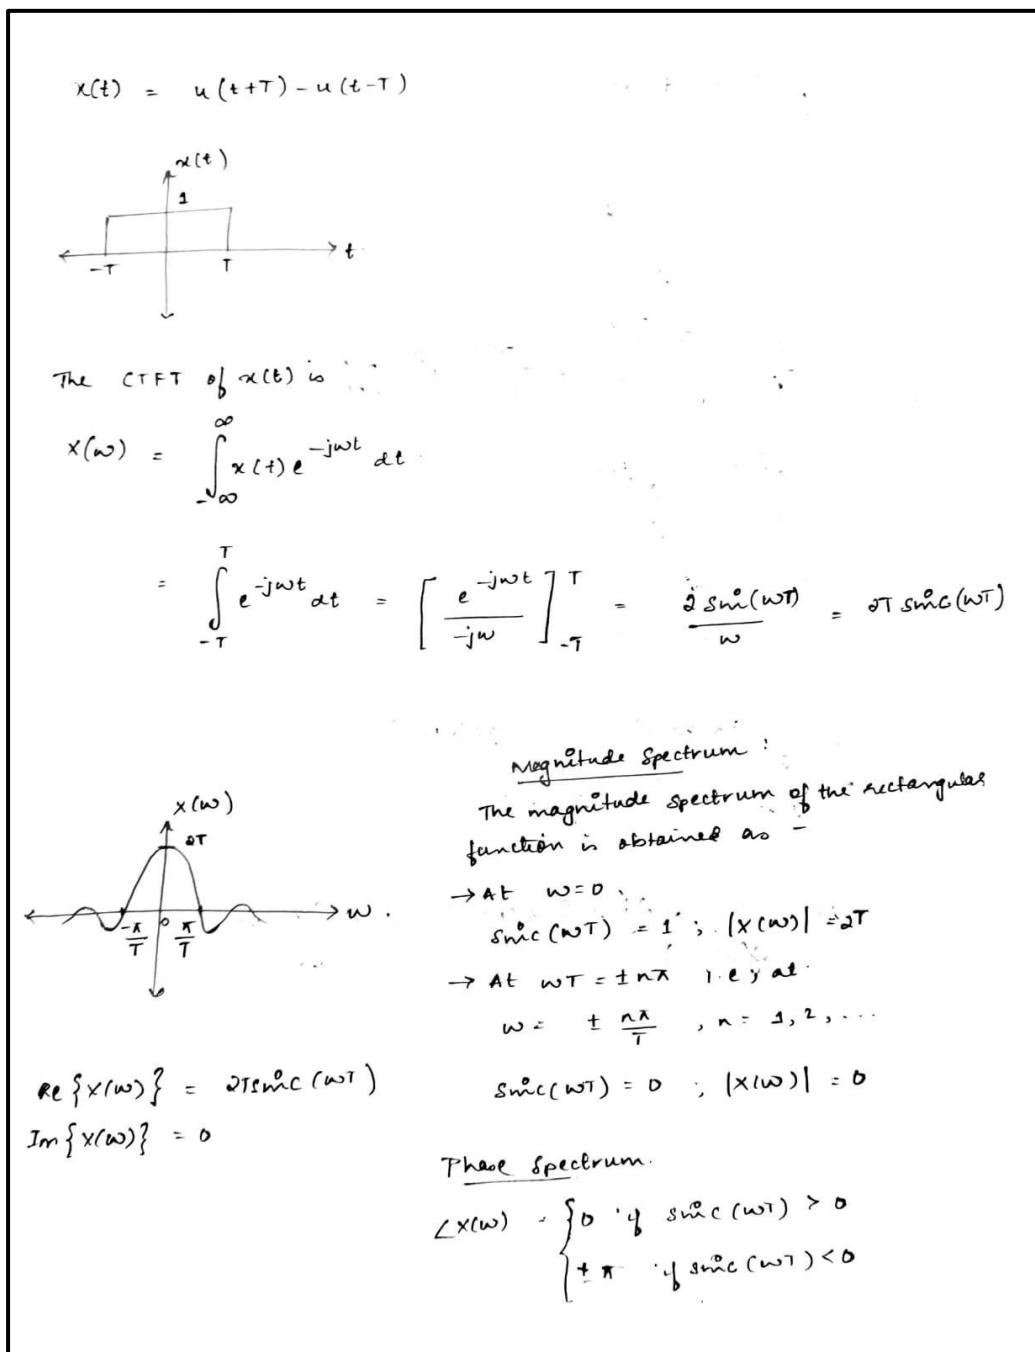 x(t) = u(t+T) - u(t-T)
x(t)
1
-T T t
The CTFT of x(t) is
X(ω) = ∫_{-∞}^{∞} x(t) e^{-jωt} dt
= ∫_{-T}^{T} e^{-jωt} dt = [e^{-jωt}/-jω]_{-T}^{T} = 2 sin(ωT)/ω = 2T sinc(ωT)
X(ω)
2T
-π/T 0 π/T ω.
Re{X(ω)} = 2T sinc(ωT)
Im{X(ω)} = 0
Magnitude Spectrum :
The magnitude spectrum of the rectangular
function is obtained as -
→ At ω=0,
sinc(ωT) = 1 ; |X(ω)| = 2T
→ At ωT = ±nπ i.e, at
ω = ± nπ/T , n = 1, 2, ...
sinc(ωT) = 0 ; |X(ω)| = 0
Phase Spectrum.
∠X(ω) = { 0 if sinc(ωT) > 0
± π if sinc(ωT) < 0